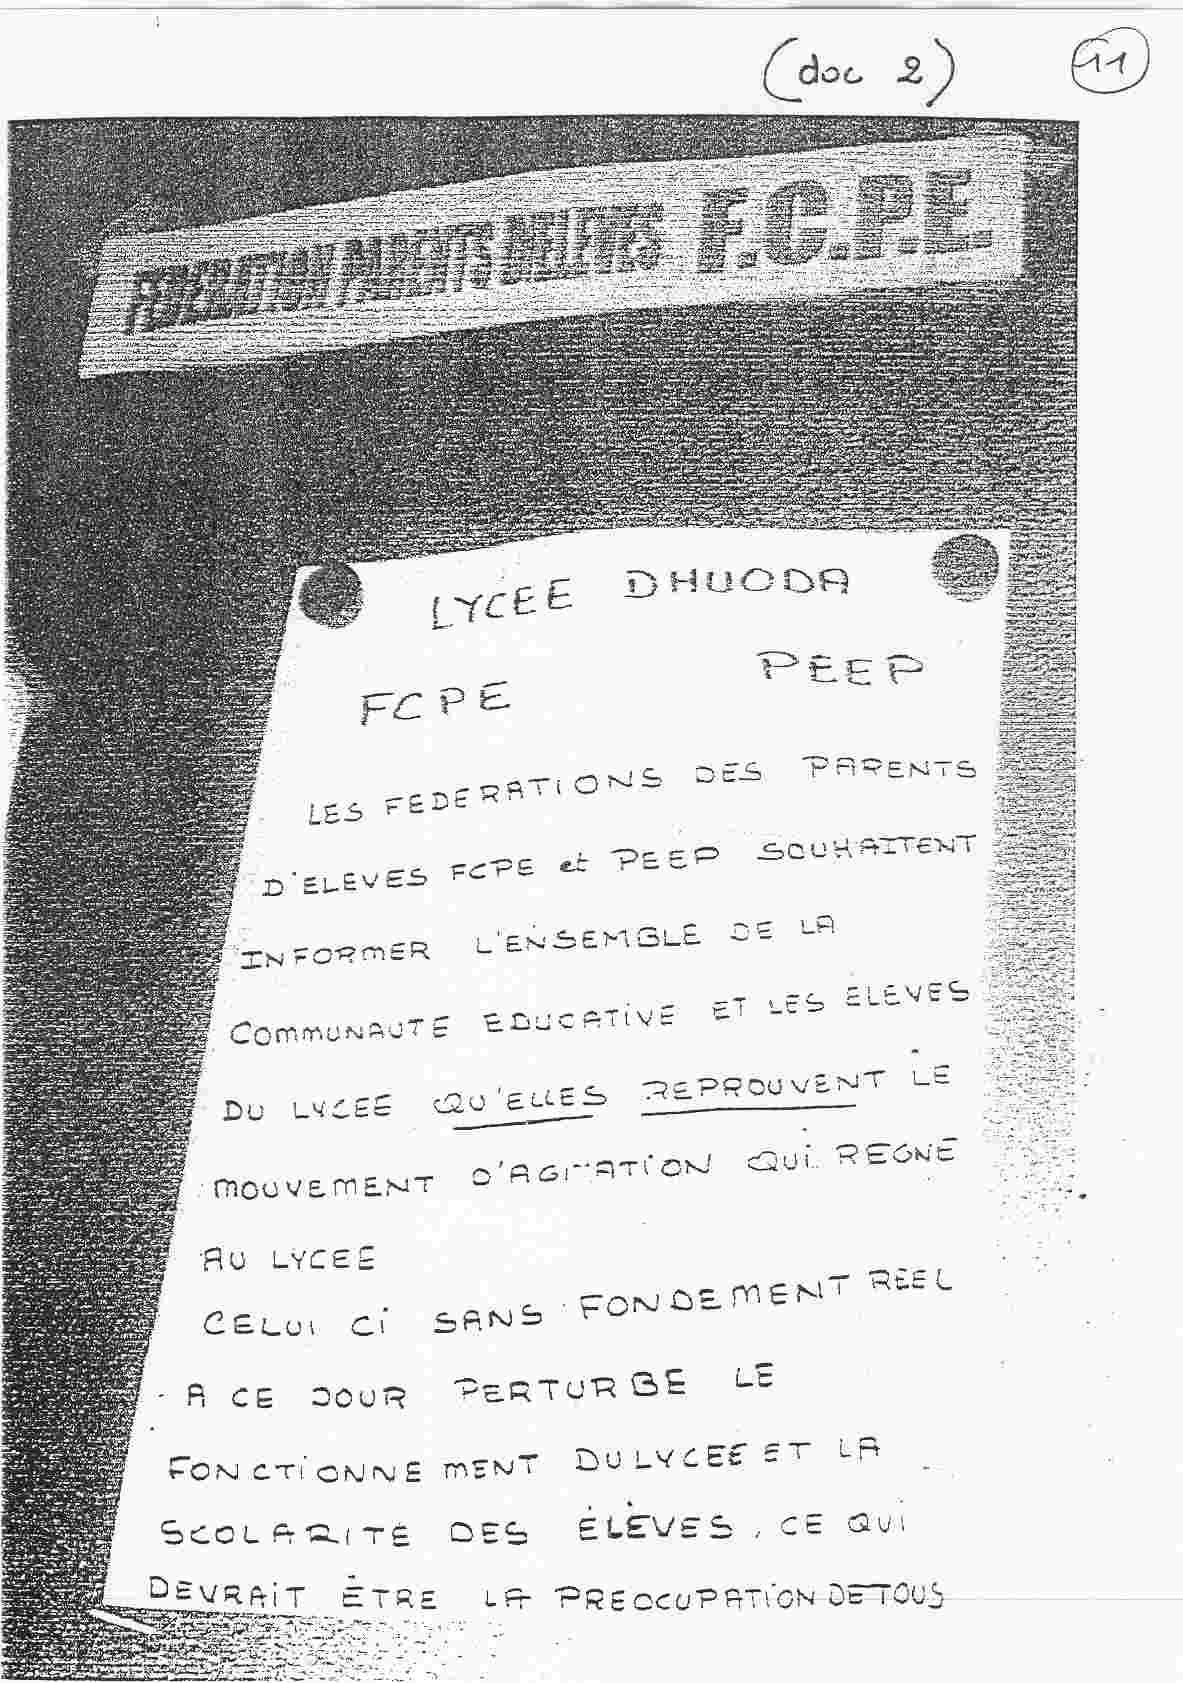 (doc 2) 11
FEDERATION PARENTS D'ELEVES F.C.P.E.
LYCEE DHUODA
FCPE PEEP
LES FEDERATIONS DES PARENTS
D'ELEVES FCPE et PEEP SOUHAITENT
INFORMER L'ENSEMBLE DE LA
COMMUNAUTE EDUCATIVE ET LES ELEVES
DU LYCEE QU'ELLES REPROUVENT LE
MOUVEMENT D'AGITATION QUI REGNE
AU LYCEE
CELUI CI SANS FONDEMENT REEL
A CE JOUR PERTURBE LE
FONCTIONNEMENT DU LYCEE ET LA
SCOLARITE DES ÉLÈVES, CE QUI
DEVRAIT ÊTRE LA PREOCUPATION DE TOUS